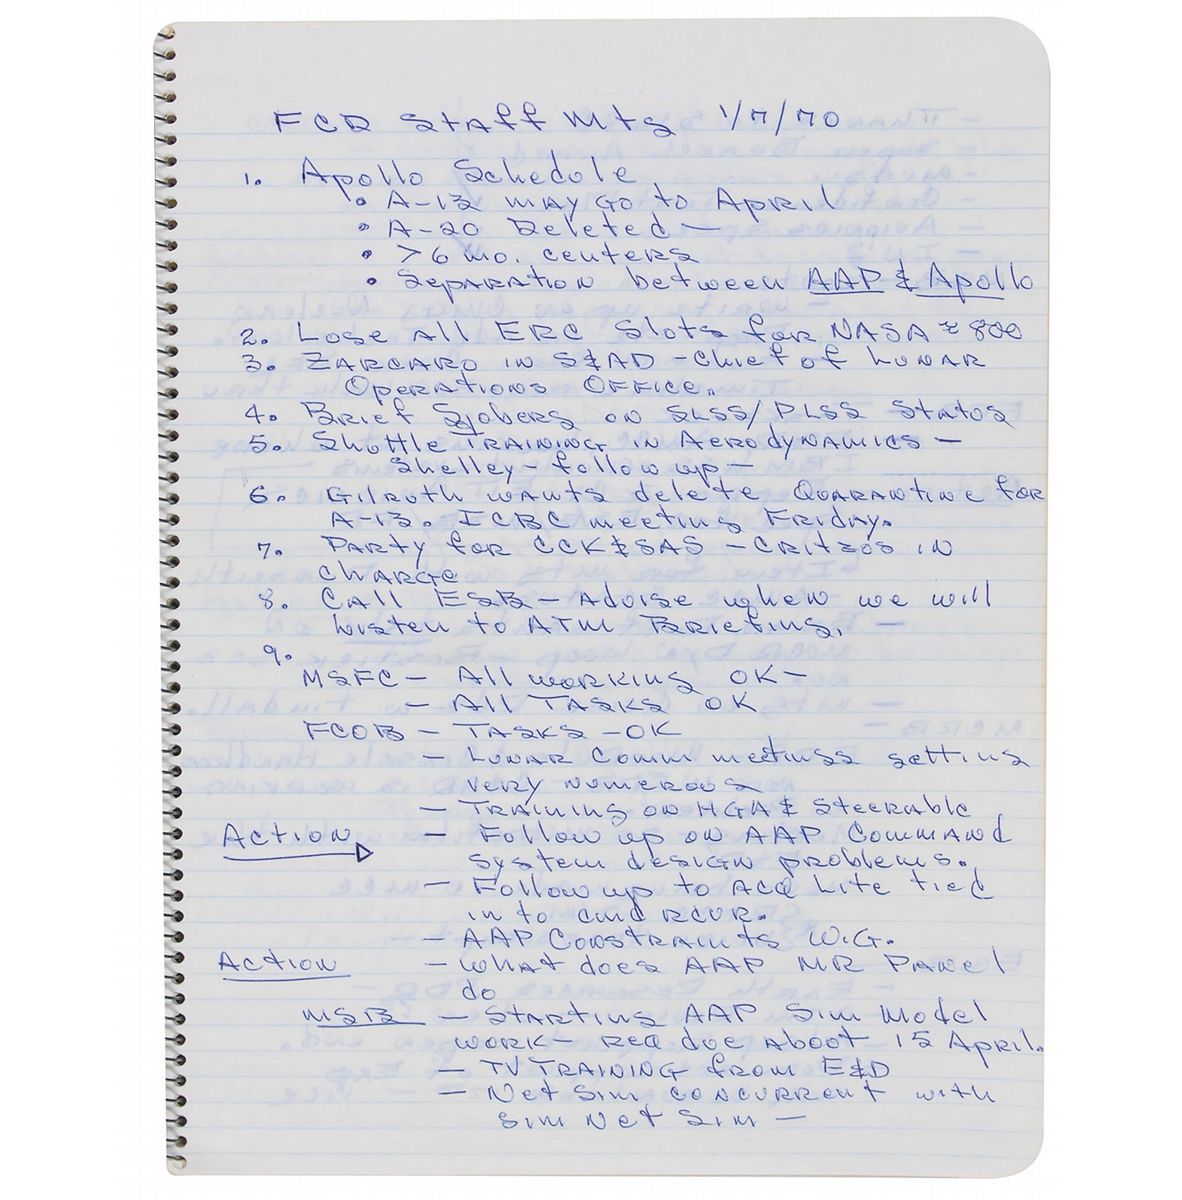 FCD Staff Mtg 1/7/70
1. Apollo Schedule
• A-13 may go to April
• A-20 Deleted —
• >6 mo. centers
• Separation between AAP & Apollo
2. Lose all ERC Slots for NASA ≈ 800
3. Zarcaro in S&AD - Chief of Lunar
Operations Office.
4. Brief Sjoberg on SLSS/PLSS Status
5. Shuttle Training in Aerodynamics —
Shelley - follow up —
6. Gilruth wants delete Quarantine for
A-13. ICBC meeting Friday.
7. Party for CCK & SAS - Critzos in
charge
8. Call ESB - Advise when we will
listen to ATM Briefing.
9.
MSFC - All working OK -
- All Tasks OK
FCOB - Tasks - OK
- Lunar Comm meetings getting
very numerous
- Training on HGA & Steerable
Action - Follow up on AAP Command
System design problems.
- Follow up to Acq Lite tied
in to cmd rcvr.
- AAP Constraints W.G.
Action - What does AAP MR Panel
do
MSB - Starting AAP Sim Model
work - req due about 15 April.
- TV Training from E&D
- Net Sim concurrent with
Sim Net Sim -